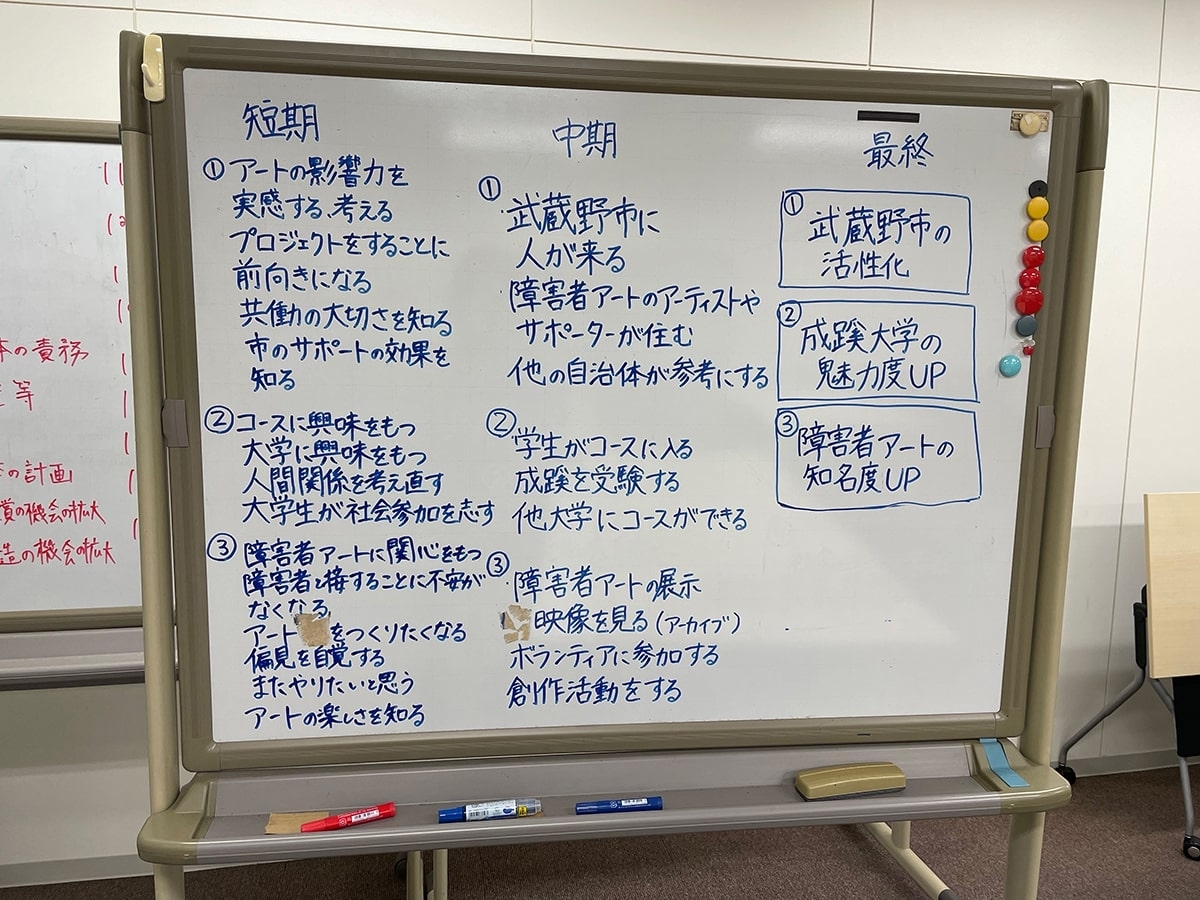 短期
①アートの影響力を
実感する、考える
プロジェクトをすることに
前向きになる
共働の大切さを知る
市のサポートの効果を
知る
②コースに興味をもつ
大学に興味をもつ
人間関係を考え直す
大学生が社会参加を志す
③障害者アートに関心をもつ
障害者と接することに不安が
なくなる
アート
をつくりたくなる
偏見を自覚する
またやりたいと思う
アートの楽しさを知る
中期
①武蔵野市に
人が来る
障害者アートのアーティストや
サポーターが住む
他の自治体が参考にする
②学生がコースに入る
成蹊を受験する
他大学にコースができる
③障害者アートの展示
映像を見る(アーカイブ)
ボランティアに参加する
創作活動をする
最終
①武蔵野市の
活性化
②成蹊大学の
魅力度UP
③障害者アートの
知名度UP
の責務
等
の計画
の機会の拡大
造の機会の拡大